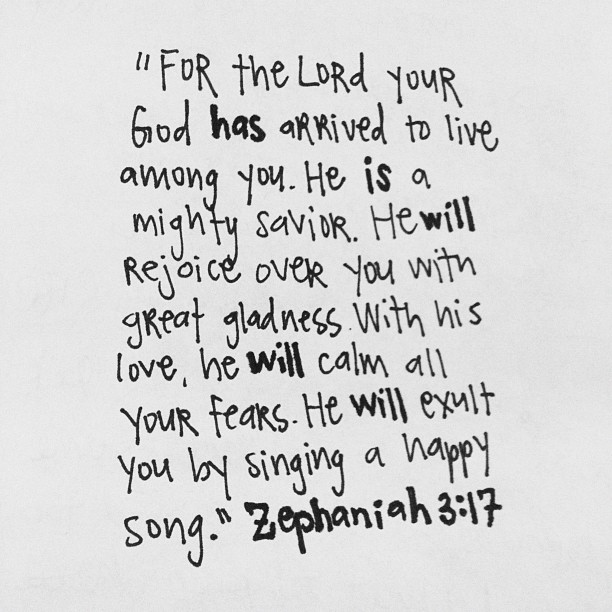 "FOR the LORD YOUR
God has ARRived to live
among you. He is a
mighty SaviOR. He will
Rejoice oveR you with
gReat gladness. With his
love, he will calm all
YOUR feaRs. He will exult
you by singing a happy
song." Zephaniah 3:17